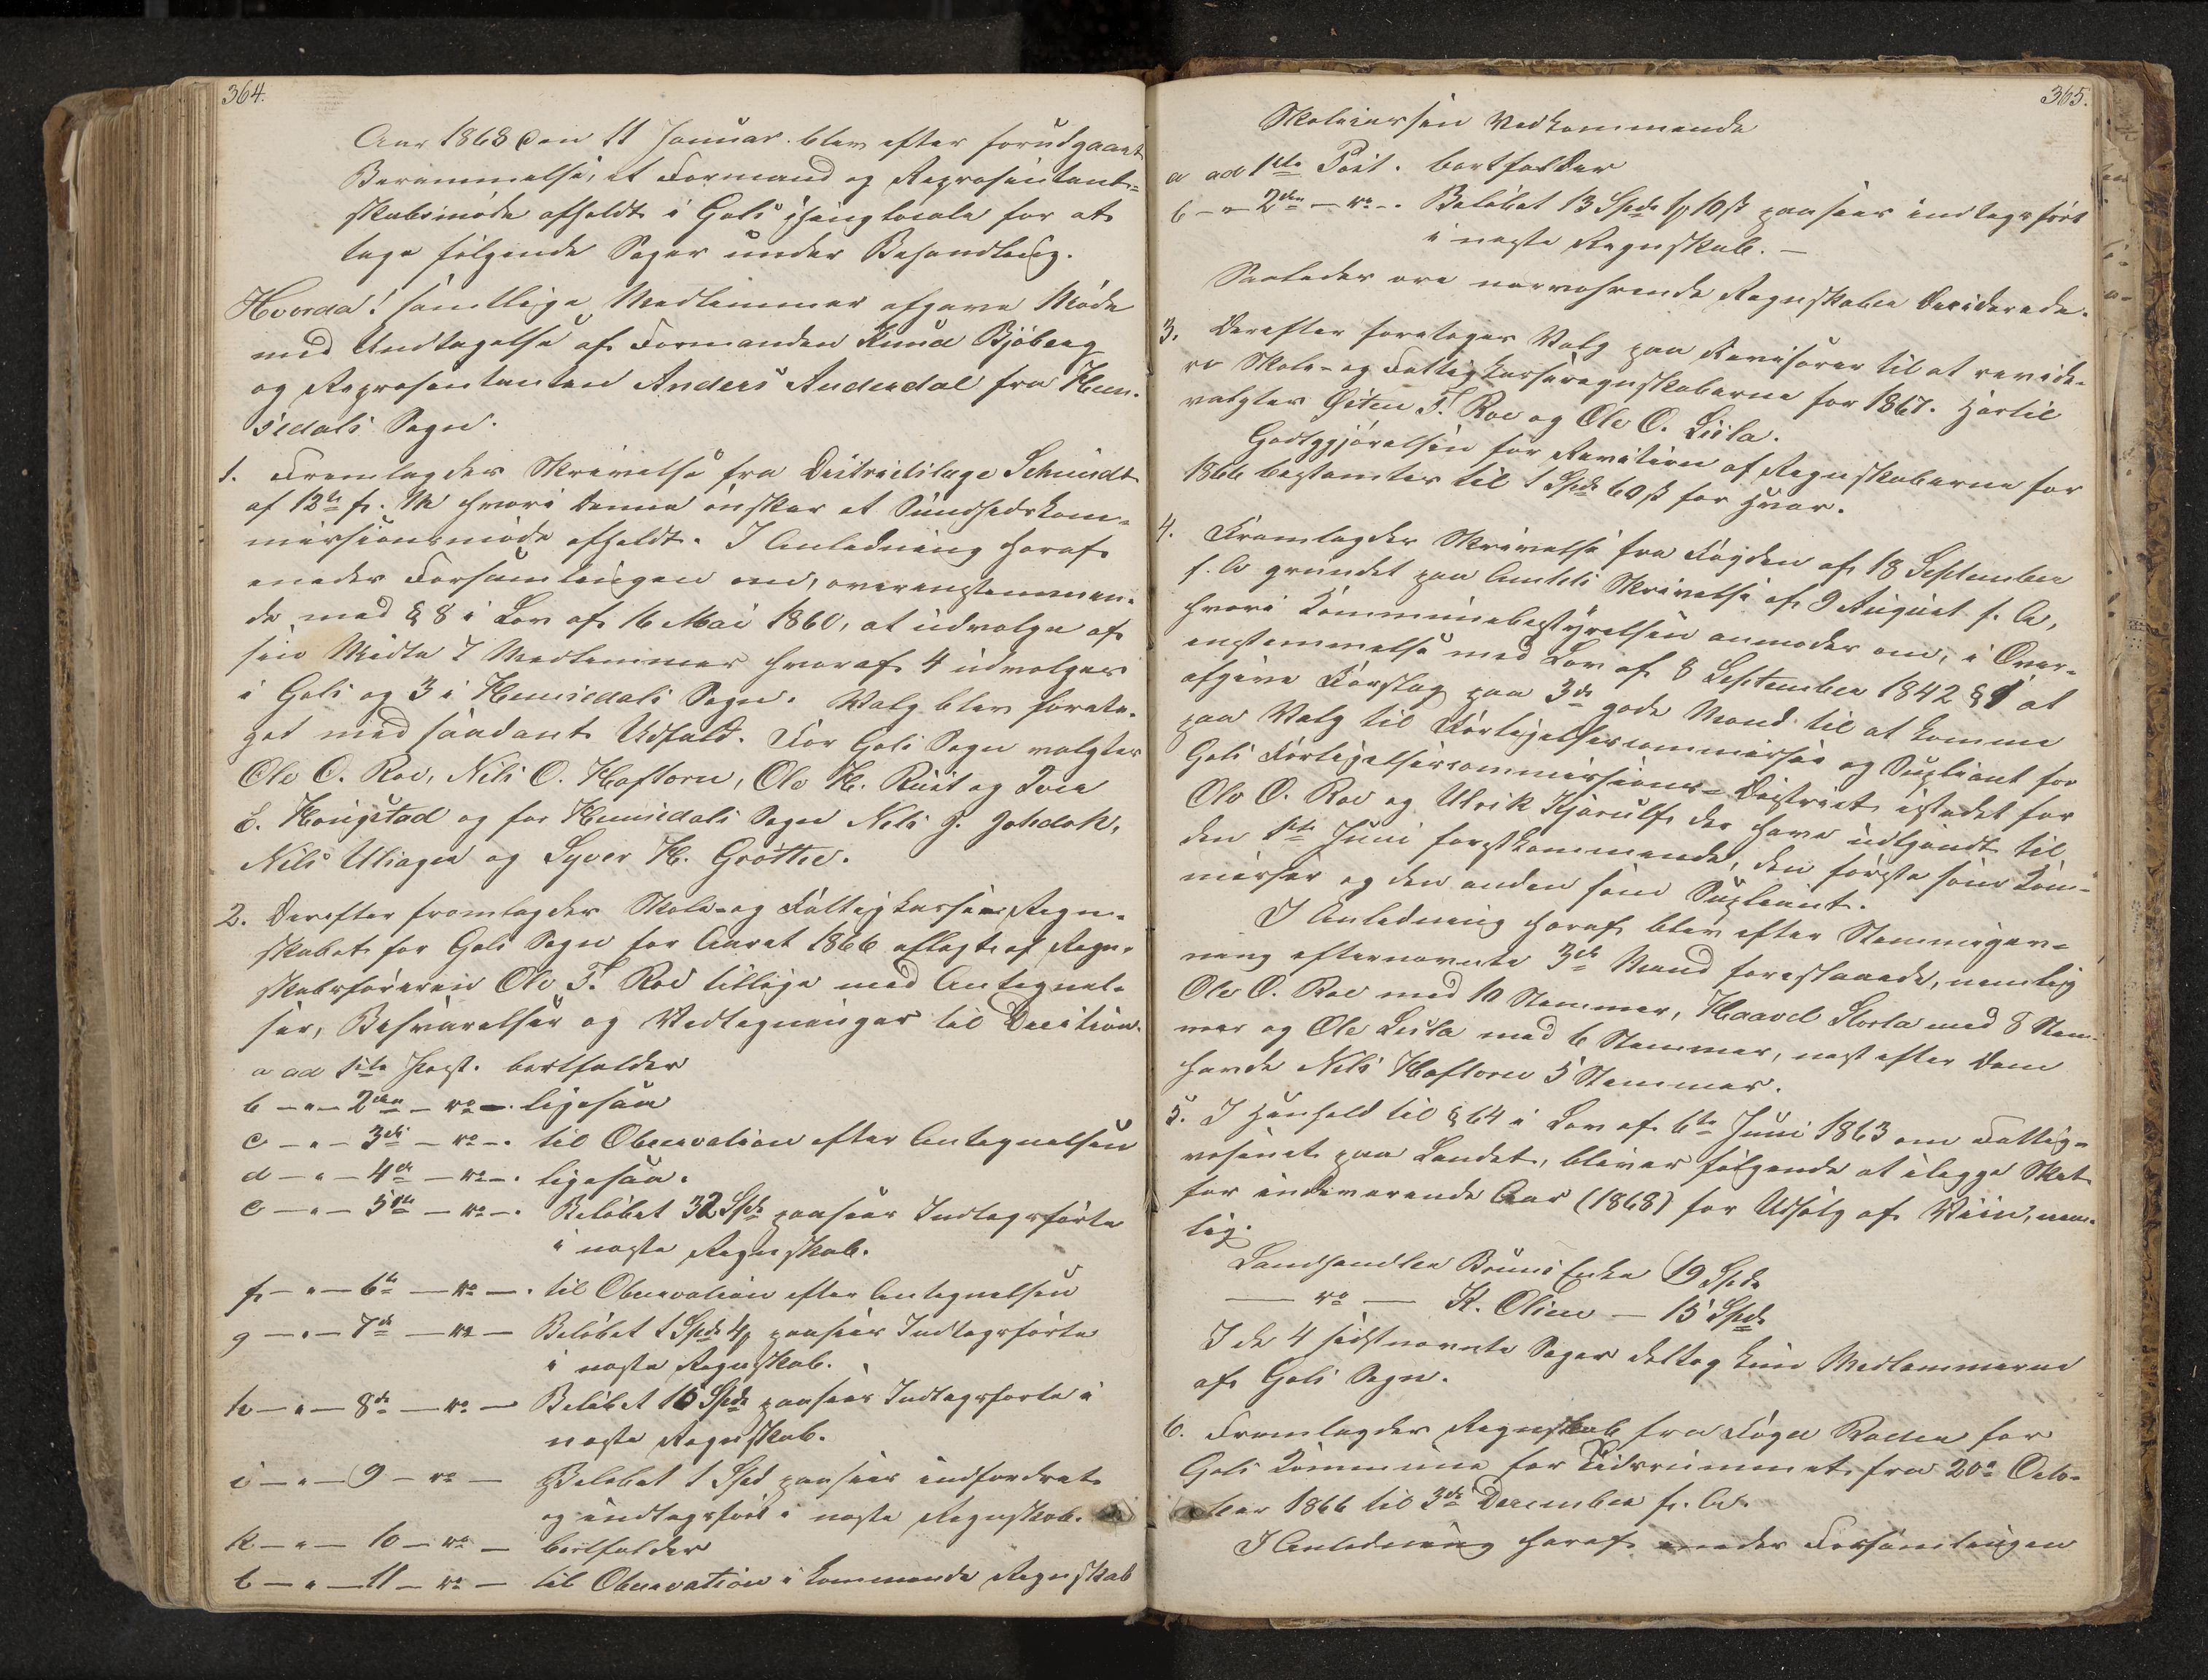 364.
Aar 1868 den 11 Januar blev efter forudgaaet
Berammelse, et Formand og Repræsentant-
skabsmøde afholdt i Gols Thinglocale for at
tage følgende Sager under Behandling.
Hvorda! samtlige Medlemmer afgave Møde
med Undtagelse af Formanden Knud Bjøberg
og Repræsentanten Anders Anderdal fra Hem-
sedals Sogn.
1. Fremlagdes Skrivelse fra Districtslæge Schmidt
af 12te f. M hvori denne ønsker et Sundhedskom-
missionsmøde afholdt. I Anledning heraf
enedes Forsamlingen om, overenstemmen-
de med § 8 i Lov af 16 Mai 1860, at udvælge af
sin Midte 7 Medlemmer hvoraf 4 udvælges
i Gols og 3 i Hemsedals Sogn. Valg blev foreta-
get med saadant Udfald. For Gols Sogn valgtes
Ole O. Roe, Nils O. Hoftorn, Ole H. Rust og Iver
E. Haugstad og for Hemsedals Sogn Nels J.
Nils Ulsagen og Syver H. Grøtte.
2. Derefter fremlagdes Skole- og Fattigkasse Regn-
skabet for Gols Sogn for Aaret 1866 aflagt af Regn-
skabsføreren Ole T. Roe tillige med Antegnel-
ser, Besvarelser og Vedtegninger til Decision.
a ad 1ste Post. bortfalder
b – " – 2den – do – . ligesaa
c – " – 3die – do – . til Observation efter Antegnelsen
d – " – 4de – do – . ligesaa.
e – " – 5te – do – . Beløbet 32 Spd paasees Indtægtsførte
i næste Regnskab.
f – " – 6te – do – . til Observation efter Antegnelsen
g – " – 7de – do – Beløbet 1 Spd 4 paasees Indtægtsførte
i næste Regnskab.
h – " – 8de – do – Beløbet 16 Spd paasees Indtægtsførte i
næste Regnskab.
i – " – 9 – do – Beløbet 1 Spd paasees indfordret
og indtægtsført i næste Regnskab.
k – " – 10 – do – bortfalder
l – " – 11 – do – til Observation i kommende Regnskab
365.
Skolekassen Vedkommende
a ad 1ste Post. bortfalder
b – " – 2den – do – . Beløbet 13 Spd 1 10 ß paasees indtægtsført
i næste Regnskab. –
Saaledes ere nærværende Regnskaber Deciderede.
3. Derefter foretoges Valg paa Revisorer til at revide-
re Skole- og Fattigkasseregnskaberne for 1867. Hertil
valgtes Østen T. Roe og Ole O. Liila.
Godtgjørelsen for Revision af Regnskaberne for
1866 bestemtes til 1 Spd 60 ß for Hver.
4. Fremlagdes Skrivelse fra Fogden af 18 September
f. A grundet paa Amtets Skrivelse af 9 August f. A,
hvori Kommunebestyrelsen anmodes om, i Over-
enstemmelse med Lov af 8 September 1842 § 1 at
afgive Forslag paa 3de gode Mænd til at komme
paa Valg til Forligelsescommissær og Supleant for
Gols Forligelsescommissions-District istedet for
Ole O. Roe og Ulrik Kjerulf der have udtjendt til
den 1ste Juni førstkommende, den første som Kom-
missær og den anden som Supleant.
I Anledning heraf blev efter Stemmegiv-
ning efternævnte 3de Mænd foreslaaede, nemlig
Ole O. Roe med 10 Stemmer, Haavel Storla med 8 Stem-
mer og Ole Liila med 6 Stemmer, næst efter dem
havde Nils Hoftorn 5 Stemmer.
5. I Henhold til § 64 i Lov af 6te Juni 1863 om Fattig-
væsenet paa Landet, bliver følgende at ilægge Skat
for indeværende Aar (1868) for Udsalg af Viin, nem-
lig.
Landhandler Bruns Enke 19 Spd
– do – K. Olsen – 15 Spd
I de 4 sidstnævnte Sager deltog kun Medlemmerne
af Gols Sogn.
6. Fremlagdes Regnskab fra Foged Roden for
Gols Kommune for Tidsrummet fra 20de Octo-
ber 1866 til 3die December f. A.
I Anledning heraf enedes Forsamlingen